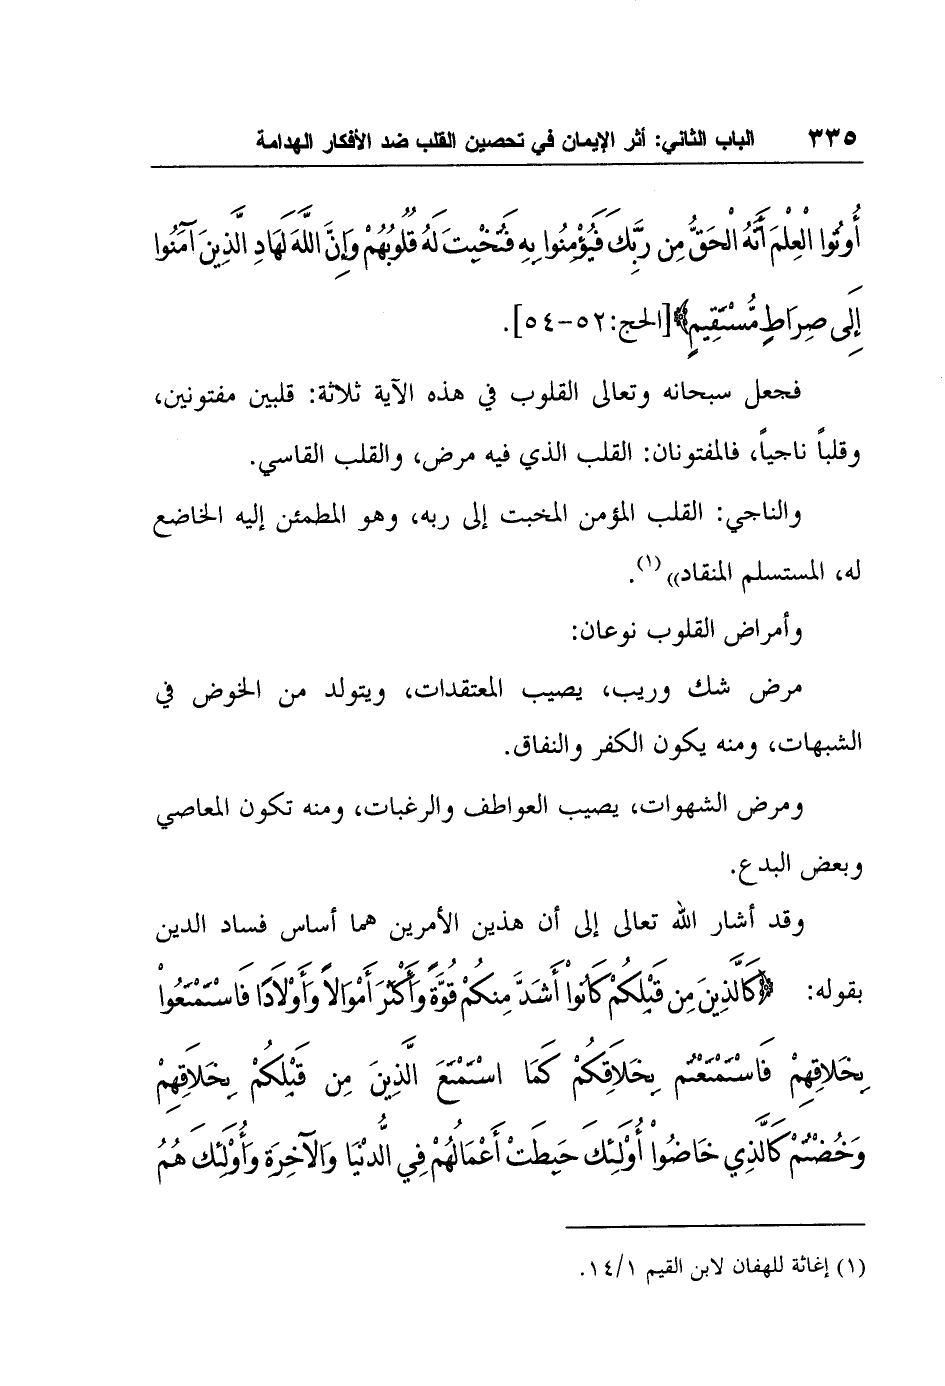 الباب الثاني: أثر الإيمان في تحصين القلب ضد الأفكار الهدامة ٣٣٥
أُوتُوا الْعِلْمَ أَنَّهُ الْحَقُّ مِن رَبِّكَ فَيُؤْمِنُوا بِهِ فَتُخْبِتَ لَهُ قُلُوبُهُمْ وَإِنَّ اللَّهَ لَهَادِ الَّذِينَ آمَنُوا
إِلَى صِرَاطٍ مُّسْتَقِيمٍ﴾[الحج:٥٢-٥٤].
فجعل سبحانه وتعالى القلوب في هذه الآية ثلاثة: قلبين مفتونين،
وقلباً ناجياً، فالمفتونان: القلب الذي فيه مرض، والقلب القاسي.
والناجي: القلب المؤمن المخبت إلى ربه، وهو المطمئن إليه الخاضع
له، المستسلم المنقاد))(١).
وأمراض القلوب نوعان:
مرض شك وريب، يصيب المعتقدات، ويتولد من الخوض في
الشبهات، ومنه يكون الكفر والنفاق.
ومرض الشهوات، يصيب العواطف والرغبات، ومنه تكون المعاصي
وبعض البدع.
وقد أشار الله تعالى إلى أن هذين الأمرين هما أساس فساد الدين
بقوله: ﴿كَالَّذِينَ مِن قَبْلِكُمْ كَانُوا أَشَدَّ مِنكُمْ قُوَّةً وَأَكْثَرَ أَمْوَالاً وَأَوْلَادًا فَاسْتَمْتَعُواْ
بِخَلاقِهِمْ فَاسْتَمْتَعْتُم بِخَلاقِكُمْ كَمَا اسْتَمْتَعَ الَّذِينَ مِن قَبْلِكُمْ بِخَلاقِهِمْ
وَخُضْتُمْ كَالَّذِي خَاضُواْ أُوْلَئِكَ حَبِطَتْ أَعْمَالُهُمْ فِي الدُّنْيَا وَالآخِرَةِ وَأُوْلَئِكَ هُمُ
(١) إغاثة للهفان لابن القيم ١٤/١.